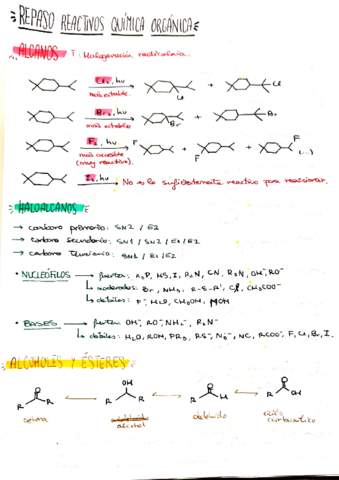 REPASO REACTIVOS QUÍMICA ORGÁNICA
ALCANOS : Halogenación radicalaria.
Cl₂, hν
más estable
Cl
+
Cl
Br₂, hν
más estable
Br
+
Br
F₂, hν
más accesible
(muy reactivo).
F
F
+
+
F
(...)
I₂, hν
No lo suficientemente reactivo para reaccionar.
HALOALCANOS
→ carbono primario: SN2 / E2
→ carbono secundario: SN1 / SN2 / E1 / E2
→ carbono terciario: SN1 / E1 / E2
• NUCLEÓFILOS → fuertes: R₃P, HS, I, R₂N, CN, R₃N, OH⁻, RO⁻
↳ moderados: Br, NH₃, R-S-R', Cl, CH₃COO⁻
↳ débiles: F⁻, H₂O, CH₃OH, ROH
• BASES → fuertes: OH⁻, RO⁻, NH₂⁻, R₂N⁻
↳ débiles: H₂O, ROH, PR₃, RS⁻, N₃⁻, NC, RCOO⁻, F, Cl, Br, I.
ALCOHOLES Y ÉSTERES
O
OH
O
O
R R
R R
R H
R OH
cetona
alcohol
aldehído
ácido carboxílico